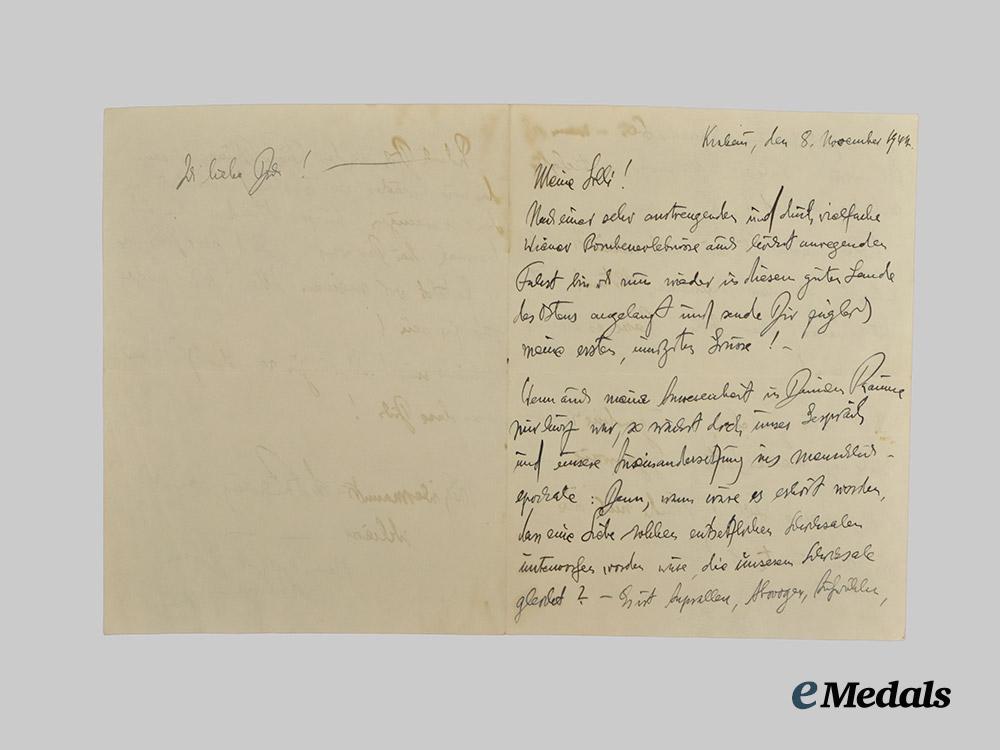 Du liebe Gute!
Krakau, den 8. November 1944.
Meine Lilli!
Nach einer sehr anstrengenden und durch vielfache
Wiener Bombenerlebnisse auch höchst anregenden
Fahrt bin ich nun wieder in diesem guten Lande
des Ostens angelangt und sende Dir zugleich
meine ersten, innigsten Grüsse! –
Wenn auch meine Anwesenheit in Deinen Räumen
nur kurz war, so wächst doch unser Gespräch
und unsere Auseinandersetzung ins Menschlich-
epochale: Denn, wann wäre es erhört worden,
dass eine Liebe solchen entsetzlichen Schicksalen
unterworfen worden wäre, die unserem Schicksale
gleicht? – Es ist Anprallen, Abwogen, Aufwühlen,
eMedals